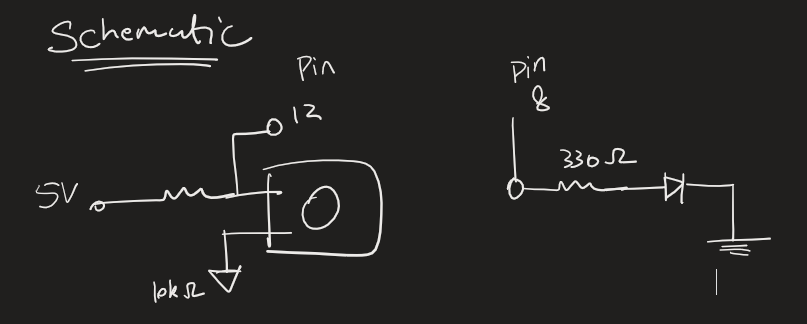 Schematic
Pin
12
5V
10kΩ
Pin
8
330Ω